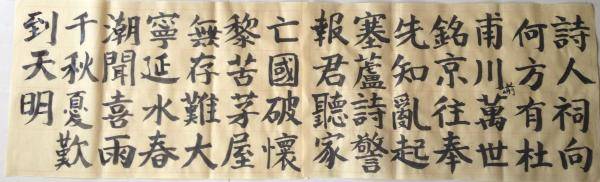 詩人祠向
何方有杜
甫川前萬世
銘京往奉
先知亂起
塞蘆詩警
報君聽家
亡國破懷
黎苦茅屋
無存難大
寧延水春
潮聞喜雨
千秋憂歎
到天明